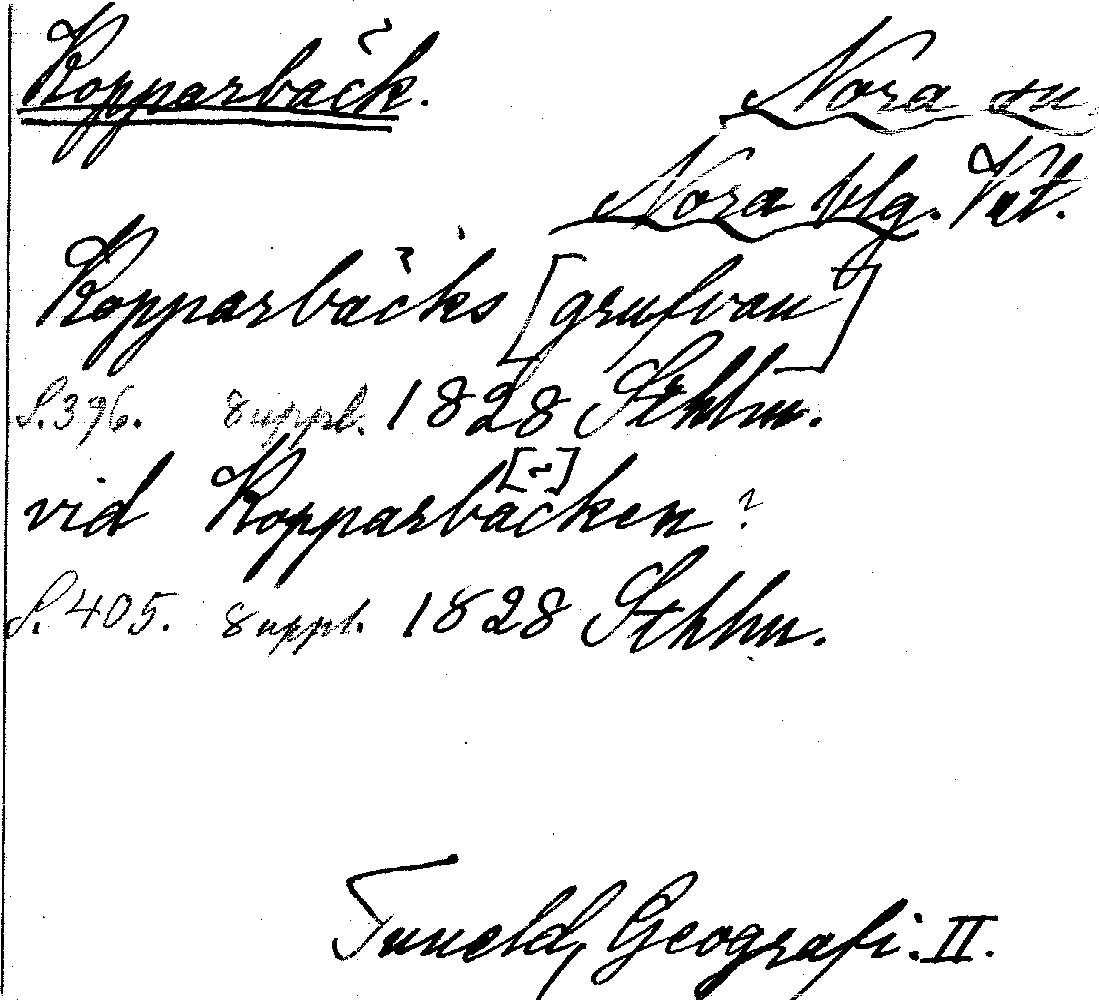 Kopparbäck.
Nora sn
Nora blg. Vst.
Kopparbäcks [grufvan]
S. 396. Suppl. 1828 Sthlm.
vid Kopparbäcken?
S. 405. Suppl. 1828 Sthlm.
Tuneld, Geografi. II.